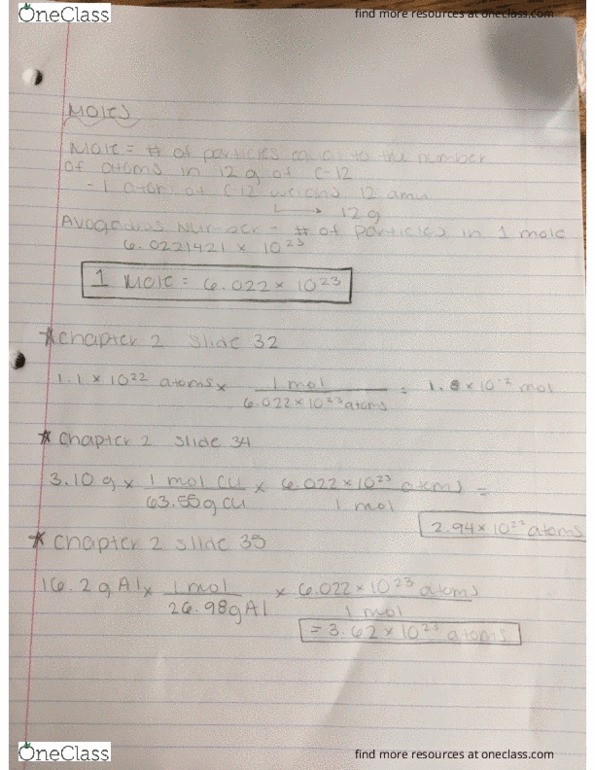 OneClass
find more resources at oneclass.com
Moles
Mole = # of particles equal to the number
of atoms in 12 g of C-12
- 1 atom of C-12 weighs 12 amu
→ 12g
Avogadros Number = # of particles in 1 mole
6.0221421 x 10²³
1 Mole = 6.022 x 10²³
★ Chapter 2 Slide 32
1.1 x 10²² atoms x 1 mol / 6.022 x 10²³ atoms = 1.8 x 10⁻² mol
★ Chapter 2 Slide 34
3.10 g x 1 mol Cu / 63.55g Cu x 6.022 x 10²³ atoms / 1 mol =
2.94 x 10²² atoms
★ Chapter 2 Slide 35
16.2g Al x 1 mol / 26.98g Al x 6.022 x 10²³ atoms / 1 mol
= 3.62 x 10²³ atoms
OneClass
find more resources at oneclass.com